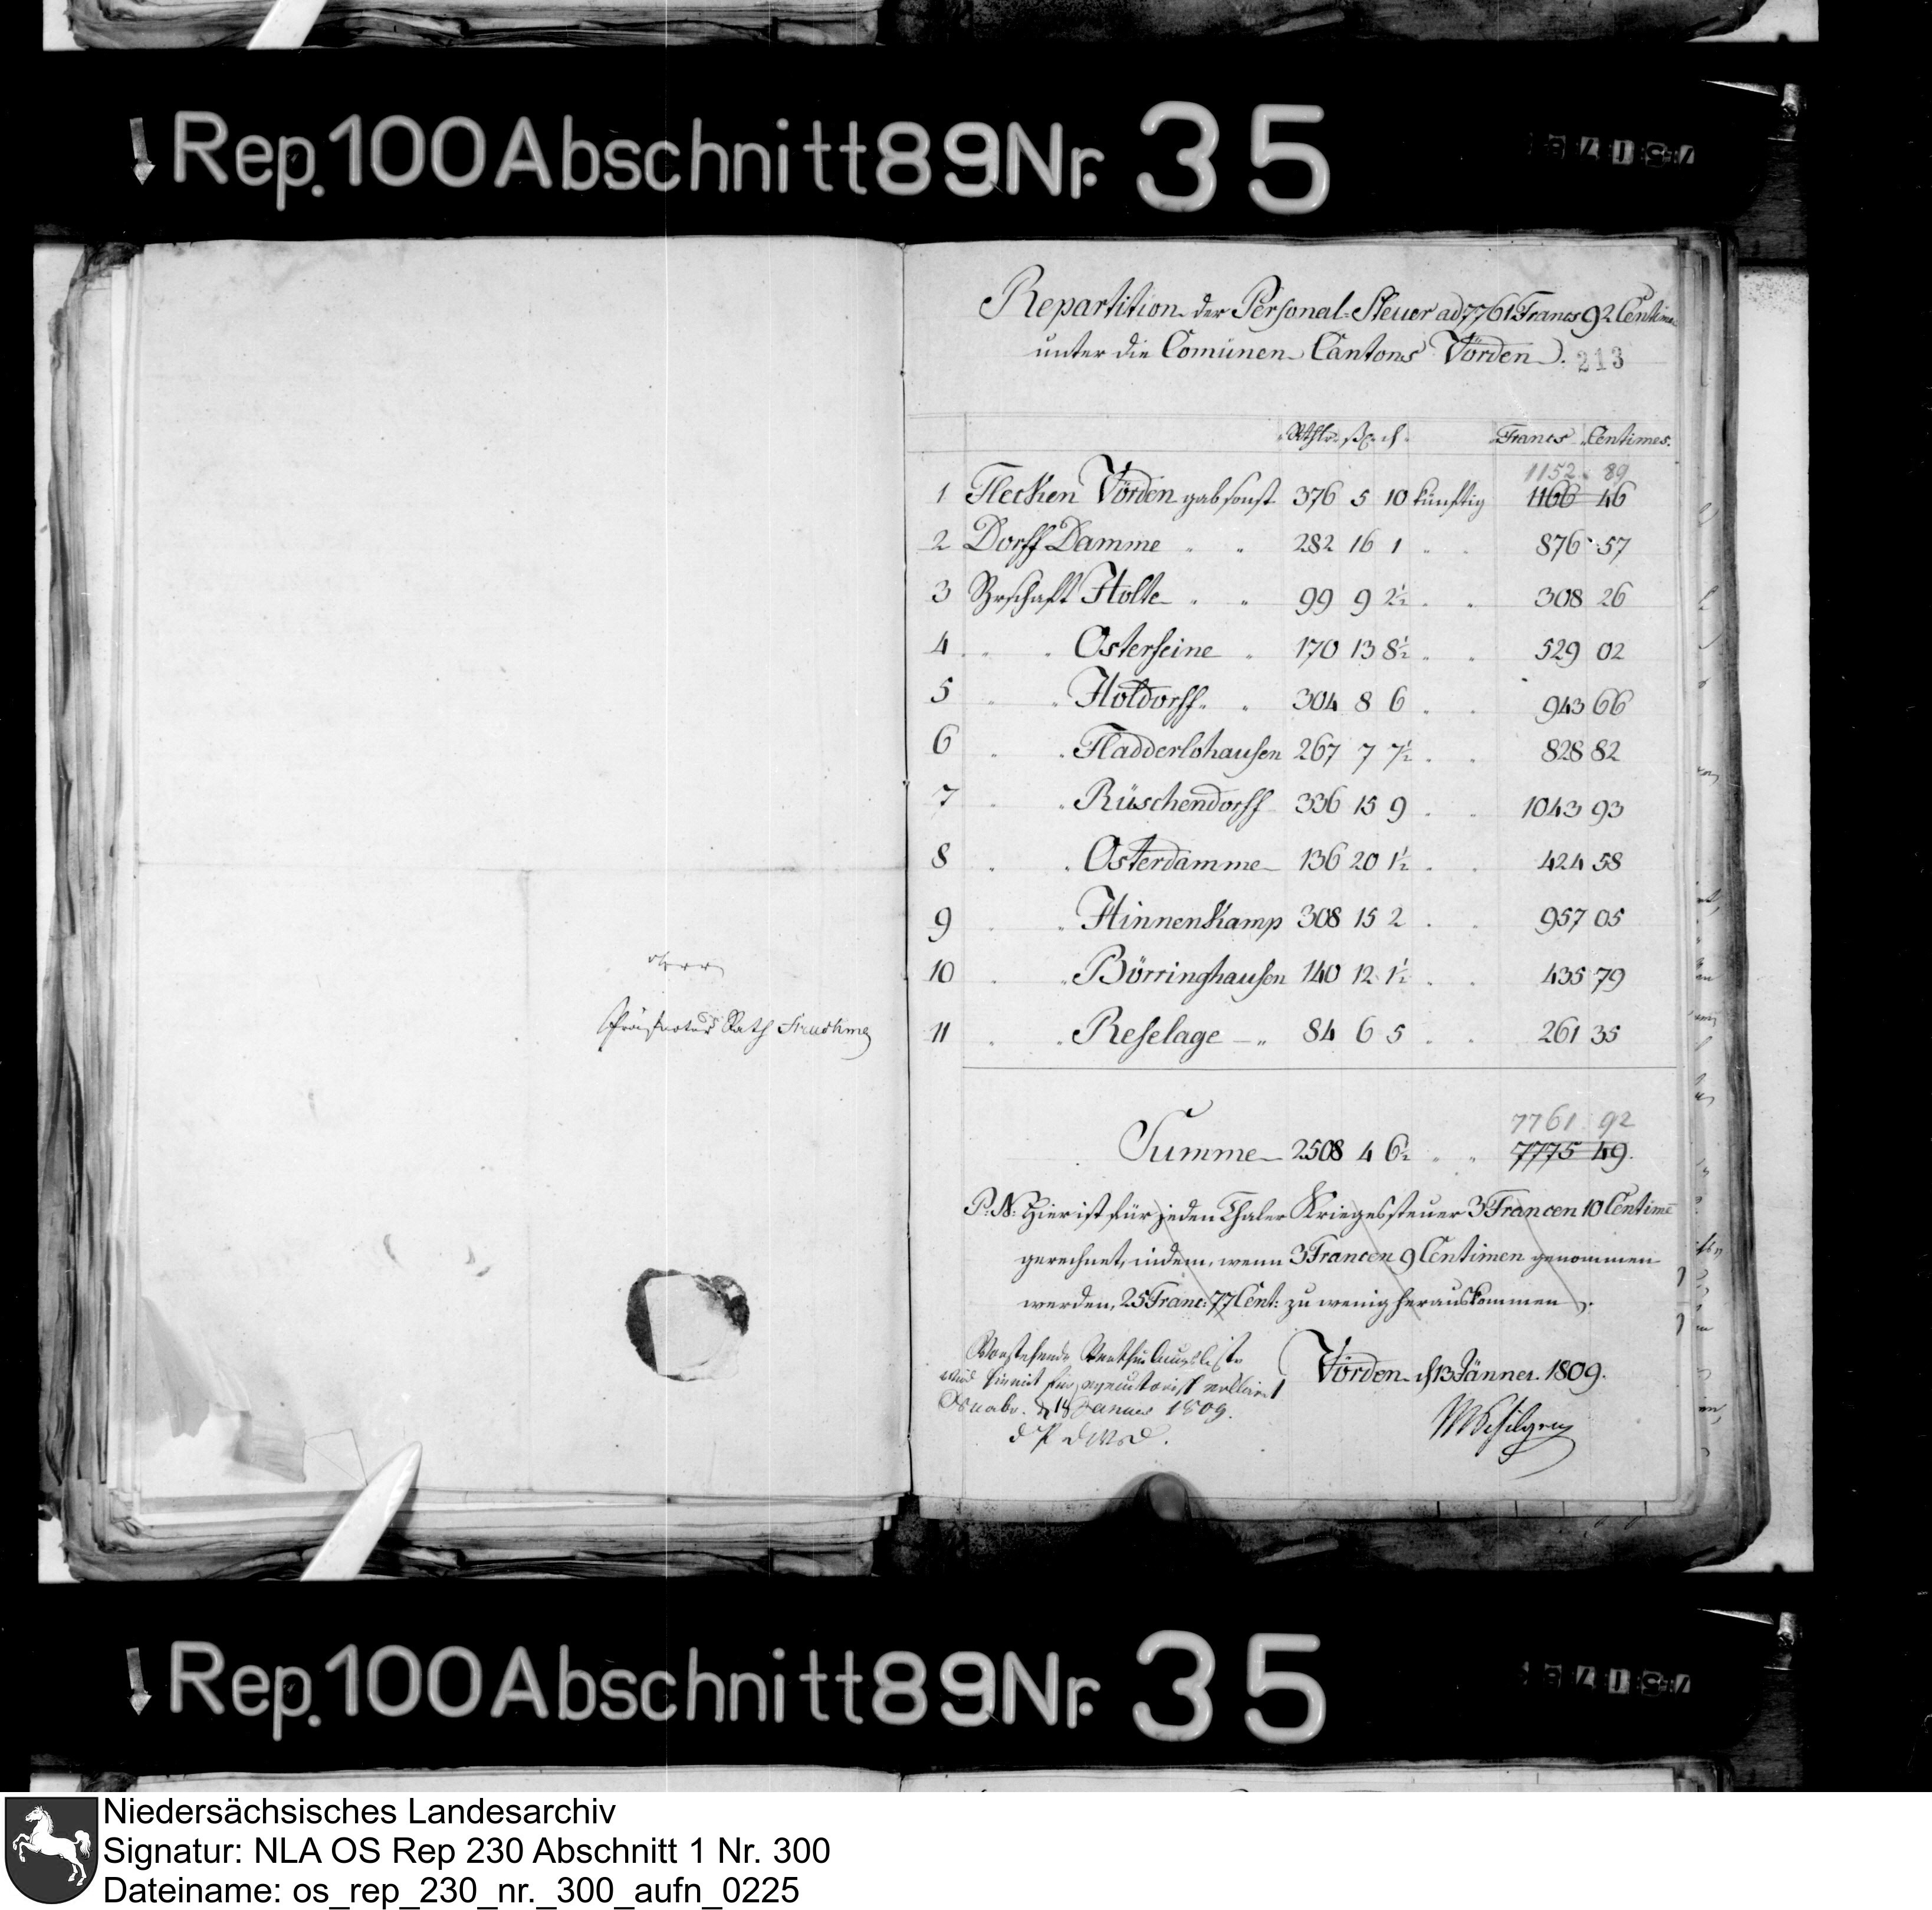 Rep. 100 Abschnitt 89 Nr. 35
Repartition der Personal-Steuer ad 7761 Francs 92 Centime
unter die Comünen Cantons Vörden.
213
Rthlr. ß. d. Francs Centimes.
1152 89
1 Flecken Vörden gab sonst 376 5 10 künftig 1166 46
2 Dorff Damme " " 282 16 1 " " 876 57
3 Brschaft Holte " " 99 9 2½ " " 308 26
4 " " Osterfeine " 170 13 8½ " " 529 02
5 " " Holdorff " " 304 8 6 " " 943 66
6 " " Fladderlohausen 267 7 7½ " " 828 82
7 " " Rüschendorff 336 15 9 " " 1043 93
8 " " Osterdamme 136 20 1½ " " 424 58
9 " " Hinnenkamp 308 15 2 " " 957 05
10 " " Börringhausen 140 12 1½ " " 435 79
11 " " Reselage " 84 6 5 " " 261 35
7761 92
Summe 2508 4 6½ " " 7775 49.
P. N. Hier ist für jeden Thaler Kriegessteuer 3 Francen 10 Centime
gerechnet, indem, wenn 3 Francen 9 Centimen genommen
werden, 25 Franc: 77 Cent: zu wenig herauskommen.
Vorstehende Vertheilungsliste
wird hiemit für executorisch erklärt
Osnabr. d 18 Januar 1809.
Vörden d 13 Jänner. 1809.
Herrn
Präfectur Rath
Rep. 100 Abschnitt 89 Nr. 35
Niedersächsisches Landesarchiv
Signatur: NLA OS Rep 230 Abschnitt 1 Nr. 300
Dateiname: os_rep_230_nr._300_aufn_0225